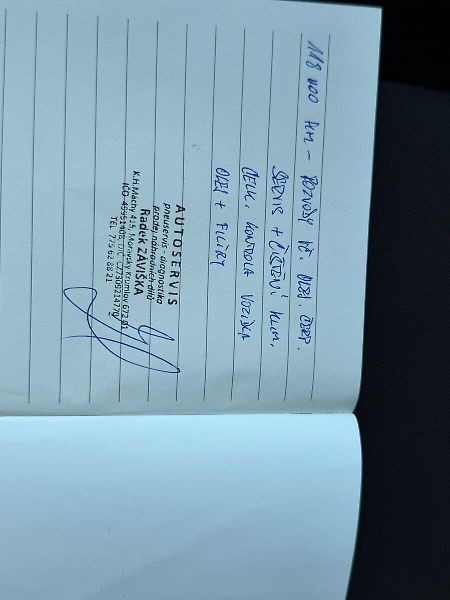 118 400 km - ROZVODY VČ. VLOŽ. ČERP.
SERVIS + ČIŠTĚNÍ KLIM.
CELK. KONTROLA VOZIDLA
OLEJ + FILTRY
AUTOSERVIS
pneuservis - diagnostika
prodej náhradních dílů
Radek ZAVIŠKA
K.H.Máchy 415, Moravský Krumlov 672 01
IČO 45951408, DIČ CZ7309214770
TEL. 775 62 88 21